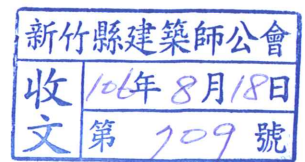 新竹縣建築師公會
收文
106年8月18日
第709號